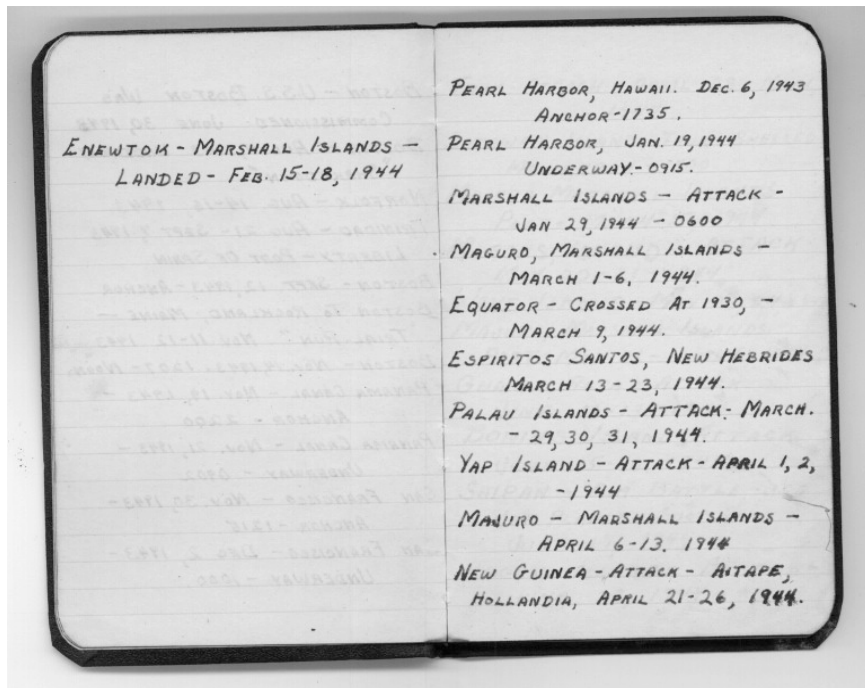 ENEWTOK - MARSHALL ISLANDS -
LANDED - FEB. 15-18, 1944
PEARL HARBOR, HAWAII. DEC. 6, 1943
ANCHOR-1735.
PEARL HARBOR, JAN. 19, 1944
UNDERWAY.- 0915.
MARSHALL ISLANDS - ATTACK -
JAN 29, 1944 - 0600
MAGURO, MARSHALL ISLANDS -
MARCH 1-6, 1944.
EQUATOR - CROSSED AT 1930, -
MARCH 9, 1944.
ESPIRITOS SANTOS, NEW HEBRIDES
MARCH 13-23, 1944.
PALAU ISLANDS - ATTACK - MARCH.
- 29, 30, 31, 1944.
YAP ISLAND - ATTACK - APRIL 1, 2,
- 1944
MAJURO - MARSHALL ISLANDS -
APRIL 6-13. 1944
NEW GUINEA - ATTACK - AITAPE,
HOLLANDIA, APRIL 21-26, 1944.